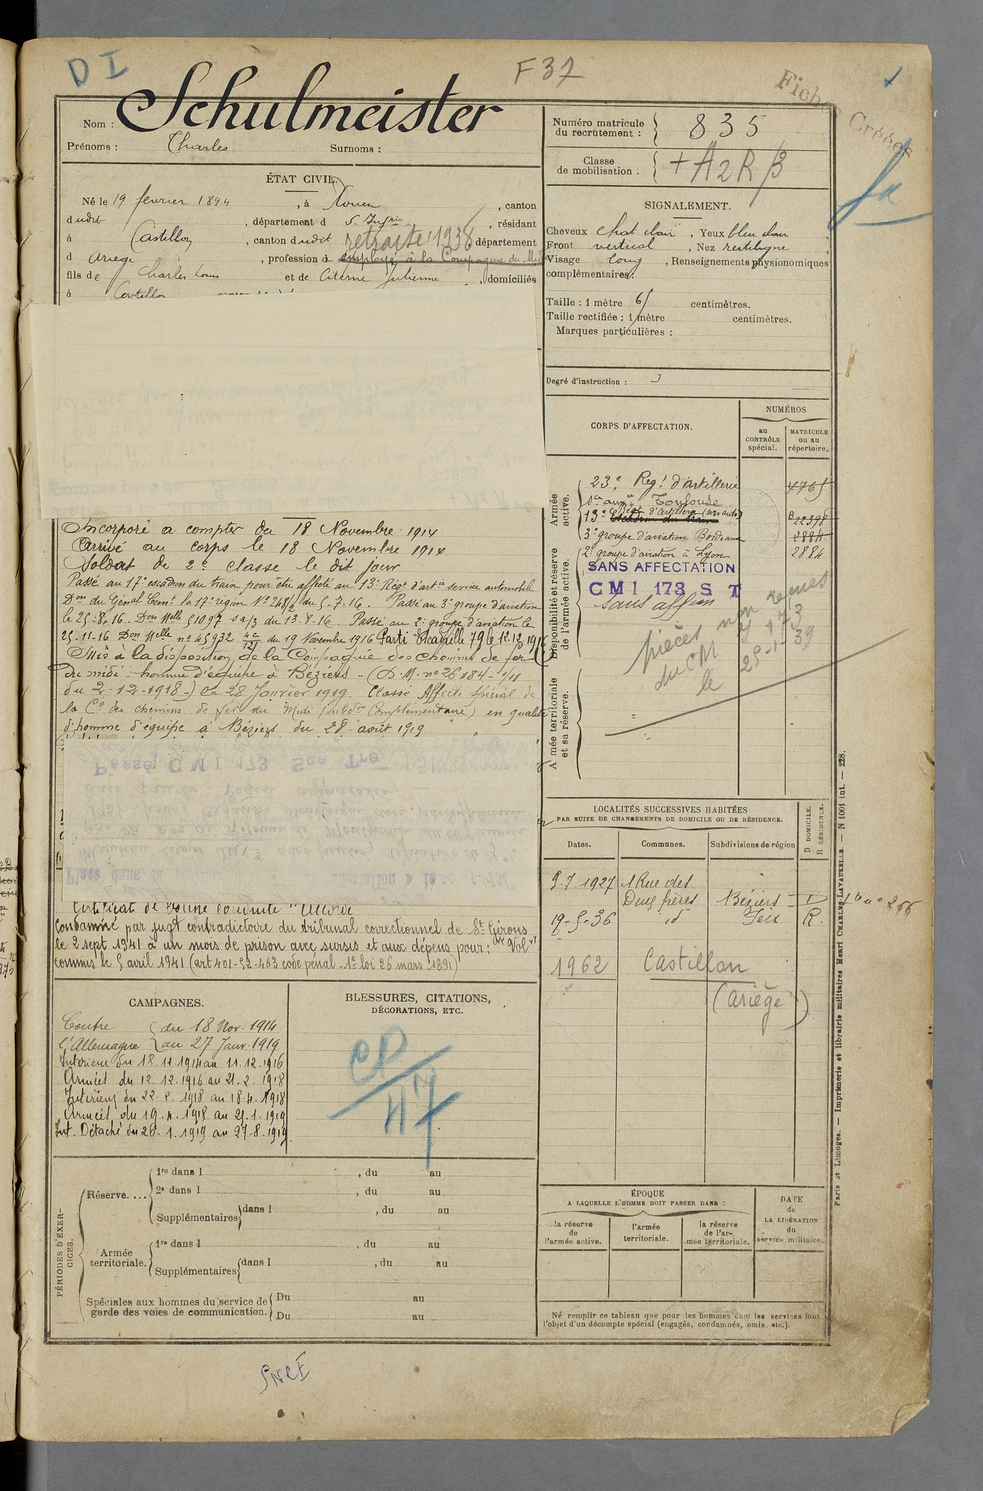 D I
F 37
Fiches Créées
Nom : Schulmeister
Prénoms : Charles Surnoms :
ÉTAT CIVIL.
Né le 19 février 1894, à Rouen, canton
dudit, département d S. Infre, résidant
à Castillon, canton dudit retraité 1938 département
d Ariège, profession d employé à la Compagnie du Midi
fils de Charles Louis et de Citerne Julienne, domiciliés
à Castillon
Incorporé à compter du 18 Novembre 1914
Arrivé au corps le 18 Novembre 1914
Soldat de 2e classe le dit jour
Passé au 17e escadron du train pour être affecté au 13e Régt d'artie service automobile
Don du Génal Comt la 17e région No 248/2 du 5-7-16. Passé au 3e groupe d'aviation
le 25-8-16. Don Melle 51097 sa/3 du 13.8.16. Passé au 2e groupe d'aviation le
25-11-16 Don Melle no 45932 du 19 Novembre 1916 Parti Escadrille 79 le 12.12.1916
Mis à la disposition de la Compagnie des Chemins de fer
du midi - homme d'équipe à Béziers - (D.M. no 26184-1/11
du 2-12-1918-) du 28 Janvier 1919. Classé Affecté Spécial de
la Cie des chemins de fer du Midi (subdon Complémentaire) en qualité
d'homme d'équipe à Béziers du 28 août 1919
Certificat de bonne conduite "Accordé"
Condamné par jugt contradictoire du tribunal correctionnel de St Girons
le 2 sept 1941 à un mois de prison avec sursis et aux dépens pour : "Vol"
commis le 5 avril 1941 (art 401-52-463 code pénal. 1re loi 26 mars 1891)
CAMPAGNES.
Contre l'Allemagne du 18 Nov. 1914
au 27 Janv. 1919
Intérieur du 18.11.1914 au 11.12.1916
Armées du 12.12.1916 au 21.2.1918
Intérieur du 22.2.1918 au 18.4.1918
Armées du 19.4.1918 au 21.1.1919
Int. Détaché du 28.1.1919 au 27.8.1919
BLESSURES, CITATIONS,
DÉCORATIONS, ETC.
CD
117
PÉRIODES D'EXERCICES.
Réserve....
1re dans l , du au
2e dans l , du au
Supplémentaires dans l , du au
Armée territoriale.
1re dans l , du au
Supplémentaires dans l , du au
Spéciales aux hommes du service de garde des voies de communication.
Du au
Du au
SNCF
Numéro matricule du recrutement : 835
Classe de mobilisation : + A2R β
SIGNALEMENT.
Cheveux chat clair, Yeux bleu clair
Front vertical, Nez rectiligne
Visage long, Renseignements physionomiques
complémentaires:
Taille : 1 mètre 65 centimètres.
Taille rectifiée : 1 mètre centimètres.
Marques particulières :
Degré d'instruction : 3
CORPS D'AFFECTATION.
NUMÉROS
au CONTRÔLE spécial.
MATRICULE ou au répertoire.
Armée active.
23e Régt d'artillerie 4765
Toulouse
13e Régt d'artillerie (serv auto) 22398
3e groupe d'aviation Bordeaux 2884
2e groupe d'aviation à Lyon 2884
Disponibilité et réserve de l'armée active.
SANS AFFECTATION
CM I 173 S T
Sans affon
pièces non reçues
du CM I 173
le 25-1-39
Armée territoriale et sa réserve.
LOCALITÉS SUCCESSIVES HABITÉES
PAR SUITE DE CHANGEMENTS DE DOMICILE OU DE RÉSIDENCE.
Dates. Communes. Subdivisions de région
D. DOMICILE. R. RÉSIDENCE.
9.7.1927 1 Rue des
Duez frères Béziers D
19-5-36 id R.
1962 Castillon
(Ariège)
ÉPOQUE
A LAQUELLE L'HOMME DOIT PASSER DANS :
la réserve de l'armée active.
l'armée territoriale.
la réserve de l'armée territoriale.
DATE de LA LIBÉRATION du service militaire.
Ne remplir ce tableau que pour les hommes dont les services font
l'objet d'un décompte spécial (engagés, condamnés, omis, etc.).
Paris et Limoges. — Imprimerie et librairie militaires Henri CHARLES-LAVAUZELLE. — N 1001 int. — 228.